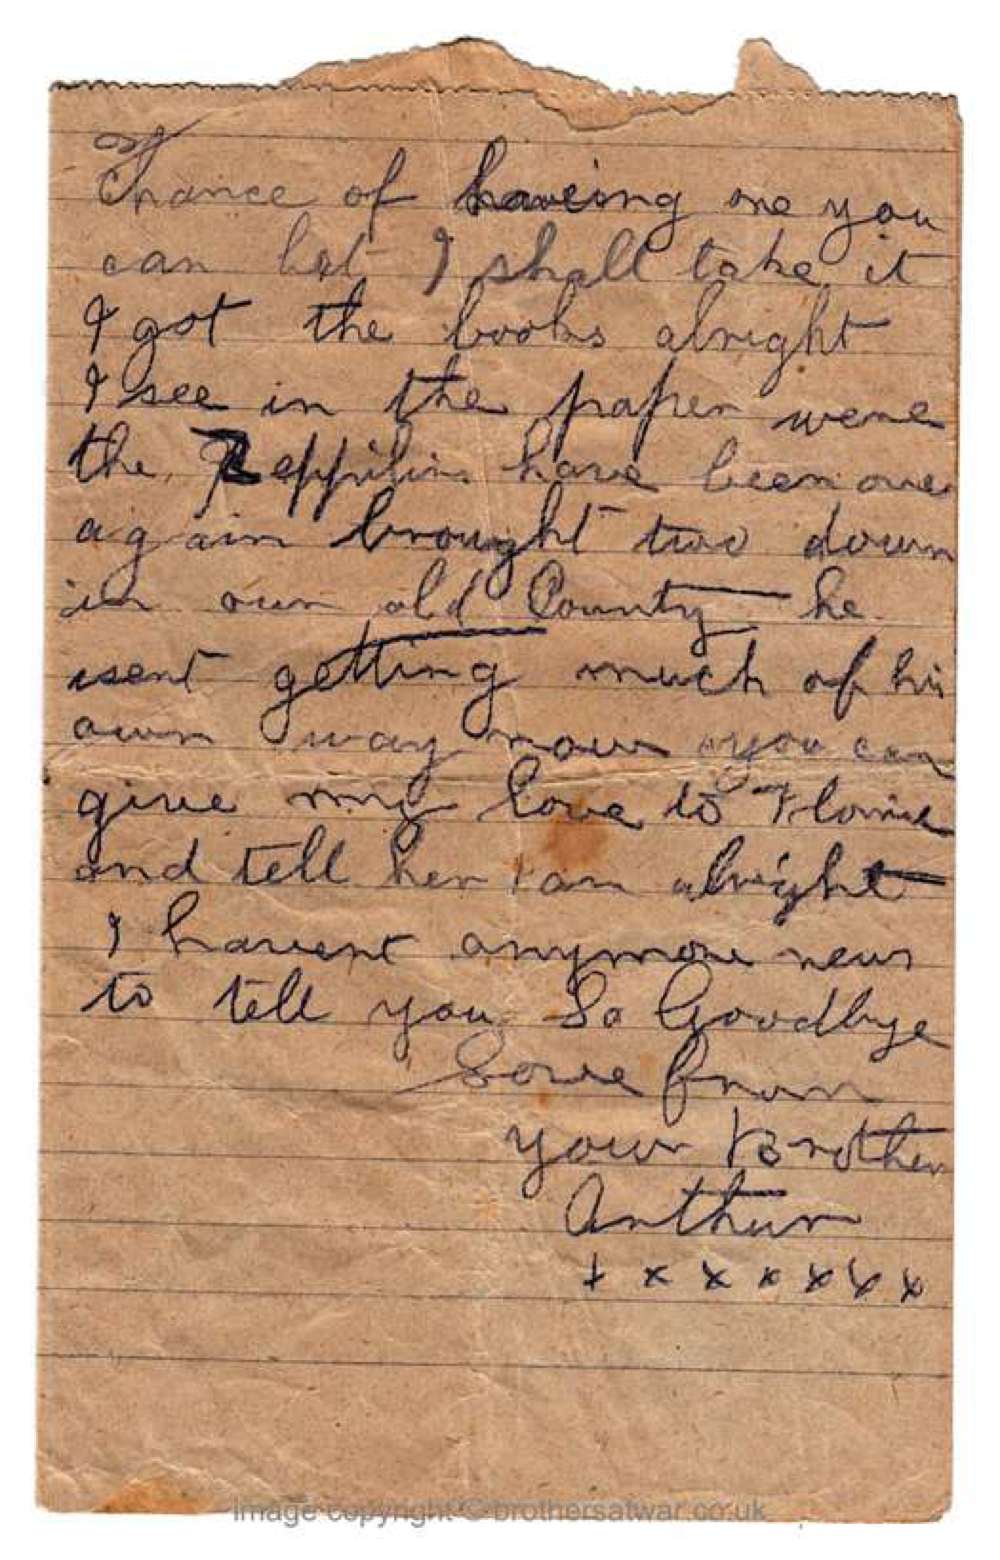 Chance of haveing one you
can bet I shall take it
I got the books alright
I see in the paper were
the Zeppilins have been over
again brought two down
in our old County he
isent getting much of his
own way now you can
give my love to Florrie
and tell her I am alright
I havent anymore news
to tell you So Goodbye
Love from
your Brother
Arthur
x x x x x x x
Image copyright © brothersatwar.co.uk